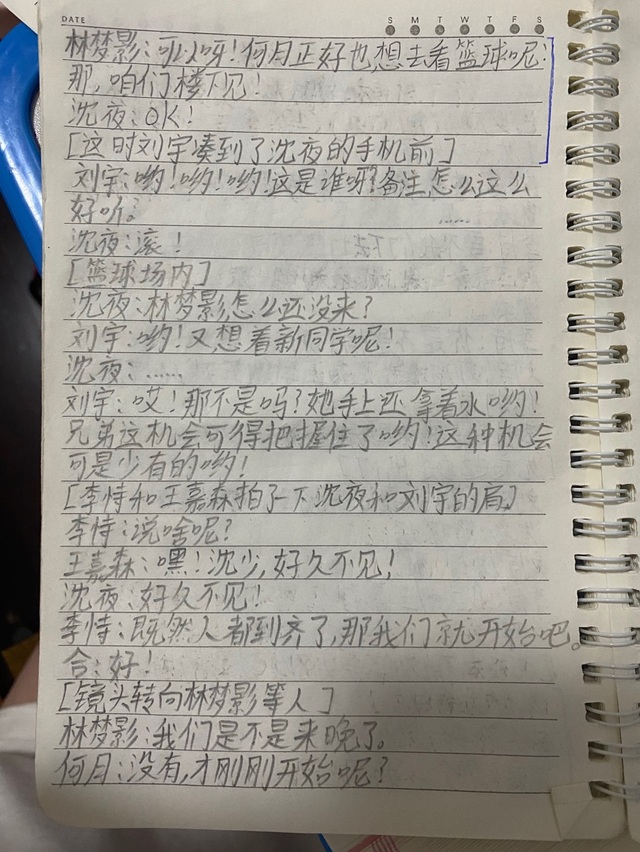 DATE
S M T W T F S
林梦影:可以呀!何月正好也想去看篮球呢!
那,咱们楼下见!
沈夜:OK!
[这时刘宇凑到了沈夜的手机前]
刘宇:哟!哟!哟!这是谁呀?备注怎么这么
好听?
沈夜:滚!
[篮球场内]
沈夜:林梦影怎么还没来?
刘宇:哟!又想着新同学呢!
沈夜:……
刘宇:哎!那不是吗?她手上还拿着水哟!
兄弟这机会可得把握住了哟!这种机会
可是少有的哟!
[李恃和王嘉森拍了一下沈夜和刘宇的肩]
李恃:说啥呢?
王嘉森:嘿!沈少,好久不见!
沈夜:好久不见!
李恃:既然人都到齐了,那我们就开始吧。
合:好!
[镜头转向林梦影等人]
林梦影:我们是不是来晚了。
何月:没有,才刚刚开始呢?